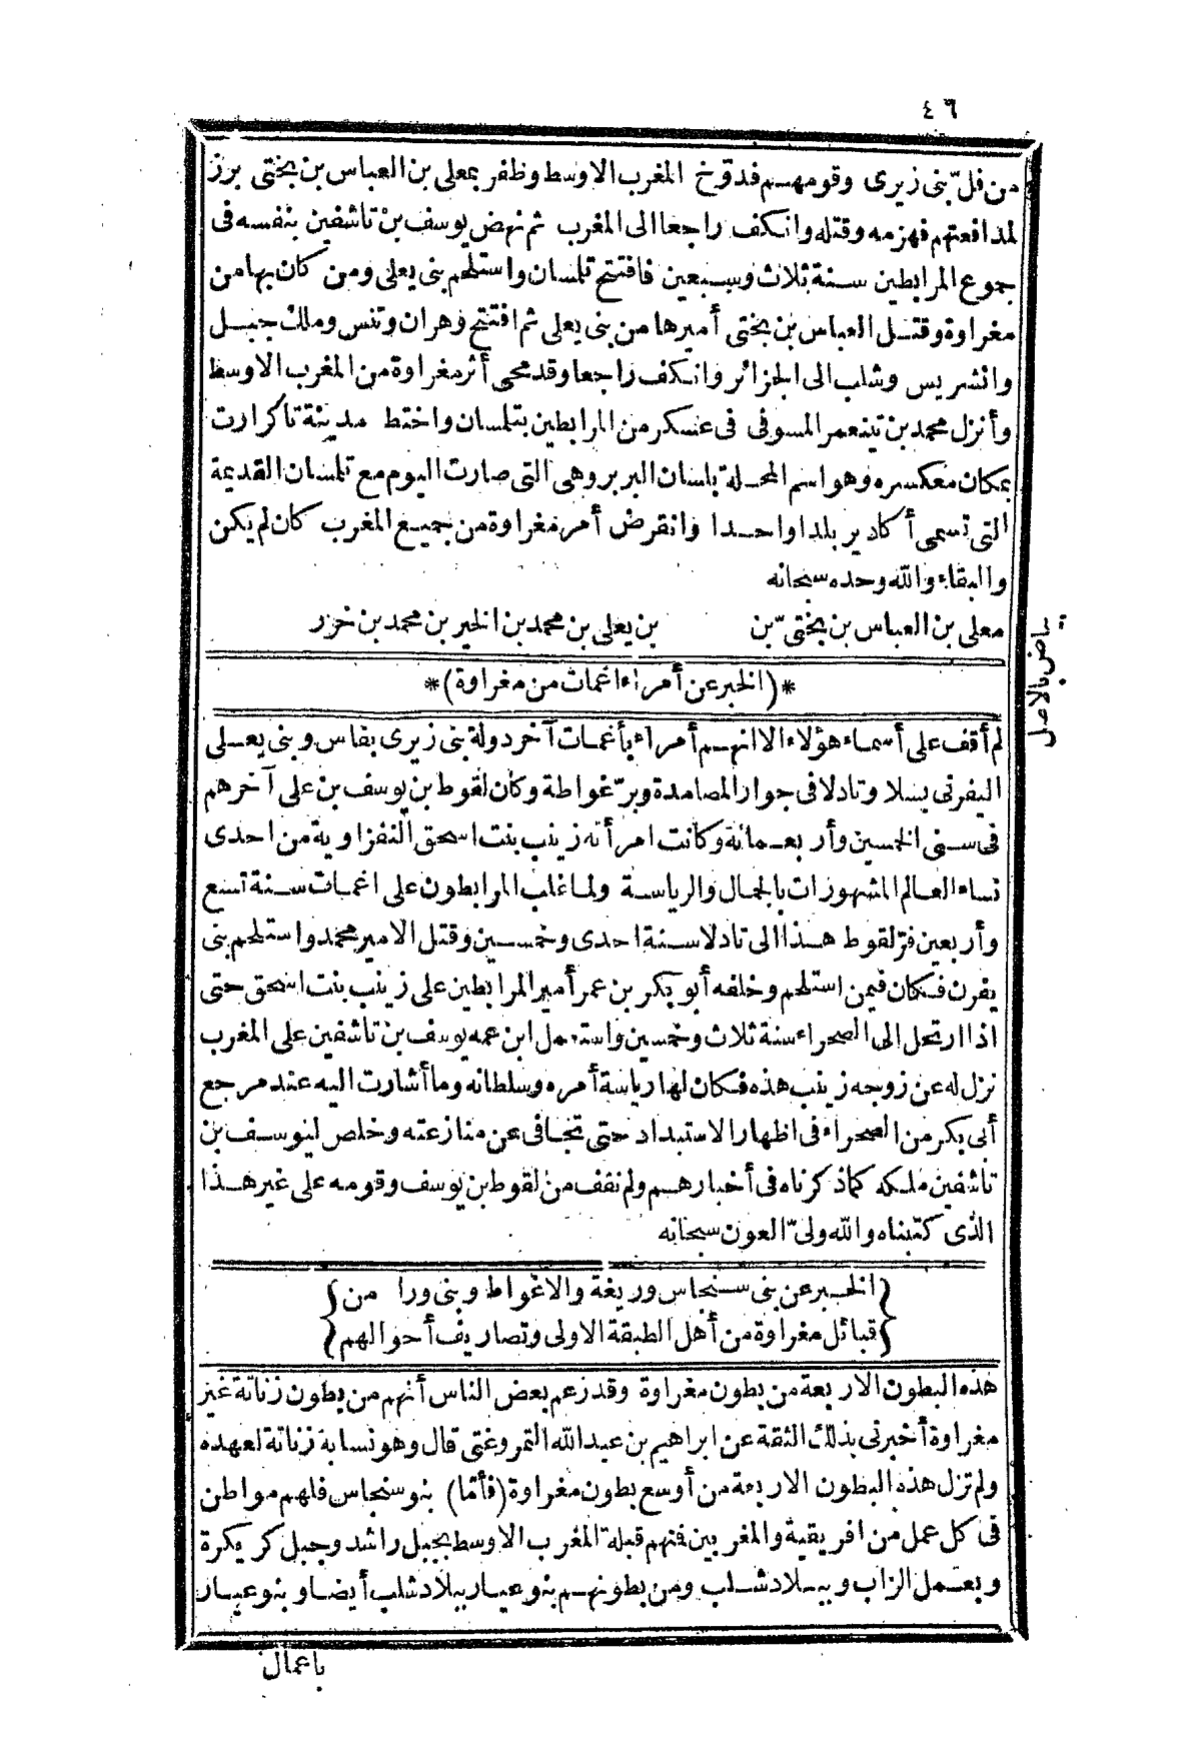 ٤٦
من فلّ بنى زيرى وقومهم فدوّخ المغرب الاوسط وظفر بمعلى بن العباس بن بختى برز
لمدافعتهم فهزمه وقتله وانكف راجعا الى المغرب ثم نهض يوسف بن تاشفين بنفسه فى
جموع المرابطين سنة ثلاث وسبعين فافتتح تلمسان واستلحم بنى يعلى ومن كان بها من
مغراوة وقتل العباس بن بختى أميرها من بنى يعلى ثم افتتح وهران وتنس وملك جبل
وانشريس وشلب الى الجزائر وانكف راجعا وقد محى أثر مغراوة من المغرب الاوسط
وأنزل محمد بن تينعمر المسوفى فى عسكر من المرابطين بتلمسان واختط مدينة تاكرارت
بمكان معكسره وهو اسم المحلة بلسان البربر وهى التى صارت اليوم مع تلمسان القديمة
التى تسمى أكادير بلدا واحدا وانقرض أمر مغراوة من جميع المغرب كان لم يكن
والبقاء والله وحده سبحانه
معلى بن العباس بن بختىّ بن بن يعلى بن محمد بن الخير بن محمد بن خزر
بياض بالاصل
*(الخبر عن أمراء اغمات من مغراوة)*
لم أقف على أسماء هؤلاء الا انهم أمراء بأغمات آخر دولة بنى زيرى بفاس وبنى يعلى
اليفرنى بسلا وتادلا فى جوار المصامدة وبرّغواطة وكان لقوط بن يوسف بن على آخرهم
فى سنى الخمسين وأربعمائة وكانت امرأته زينب بنت اسحق النفزاوية من احدى
نساء العالم المشهورات بالجمال والرياسة ولما غلب المرابطون على اغمات سنة تسع
وأربعين فرّ لقوط هذا الى تادلا سنة احدى وخمسين وقتل الامير محمد واستلحم بنى
يفرن فكان فيمن استلحم وخلفه أبو بكر بن عمر أمير المرابطين على زينب بنت اسحق حتى
اذا ارتحل الى الصحراء سنة ثلاث وخمسين واستعمل ابن عمه يوسف بن تاشفين على المغرب
نزل له عن زوجه زينب هذه فكان لها رياسة أمره وسلطانه وما أشارت اليه عند مرجع
أبى بكر من الصحراء فى اظهار الاستبداد حتى تجافى عن منازعته وخلص ليوسف بن
تاشفين ملكه كما ذكرناه فى أخبارهم ولم نقف من لقوط بن يوسف وقومه على غير هذا
الذى كتبناه والله ولىّ العون سبحانه
{الخبر عن بنى سنجاس وريغة والاغواط وبنى ورا من}
{قبائل مغراوة من أهل الطبقة الاولى وتصاريف أحوالهم}
هذه البطون الاربعة من بطون مغراوة وقد زعم بعض الناس أنهم من بطون زناتة غير
مغراوة أخبرنى بذلك الثقة عن ابراهيم بن عبد الله التمروغتى قال وهو نسابة زناتة لعهده
ولم تزل هذه البطون الاربعة من أوسع بطون مغراوة (فأمّا) بنو سنجاس فلهم مواطن
فى كل عمل من افريقية والمغربين فمنهم قبلة المغرب الاوسط بجبل راشد وجبل كريكرة
وبعمل الزاب وببلاد شلب ومن بطونهم بنو عيار ببلاد شلب أيضا وبنو عيار
باعمال